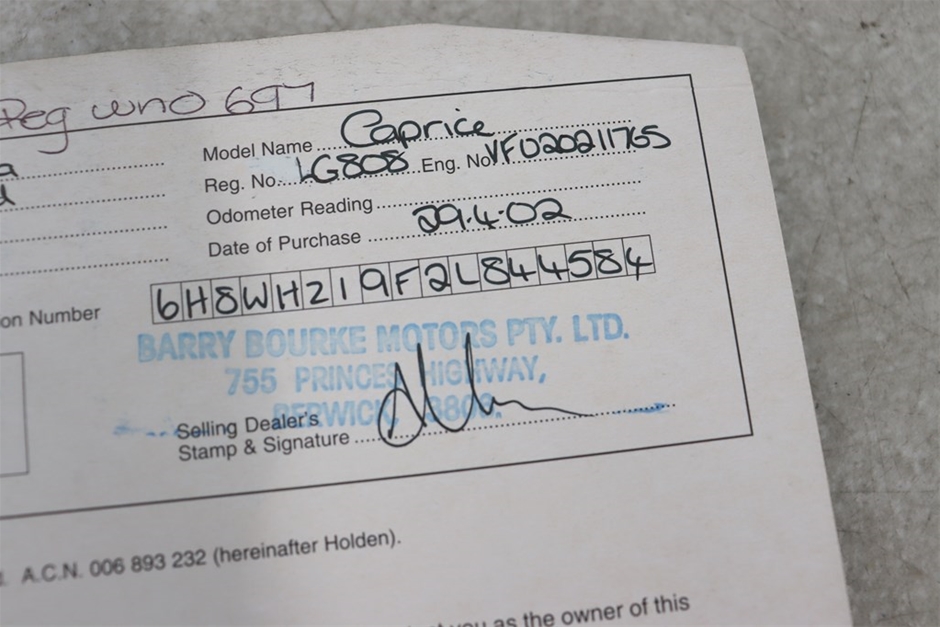 Reg WNO 697
Model Name Caprice
Reg. No. LG808 Eng. No VFO20211765
Odometer Reading
Date of Purchase 29.4.02
on Number 6H8WH219F2L844584
BARRY BOURKE MOTORS PTY. LTD.
755 PRINCES HIGHWAY,
BERWICK 3806.
Selling Dealer's
Stamp & Signature
A.C.N. 006 893 232 (hereinafter Holden).
you as the owner of this